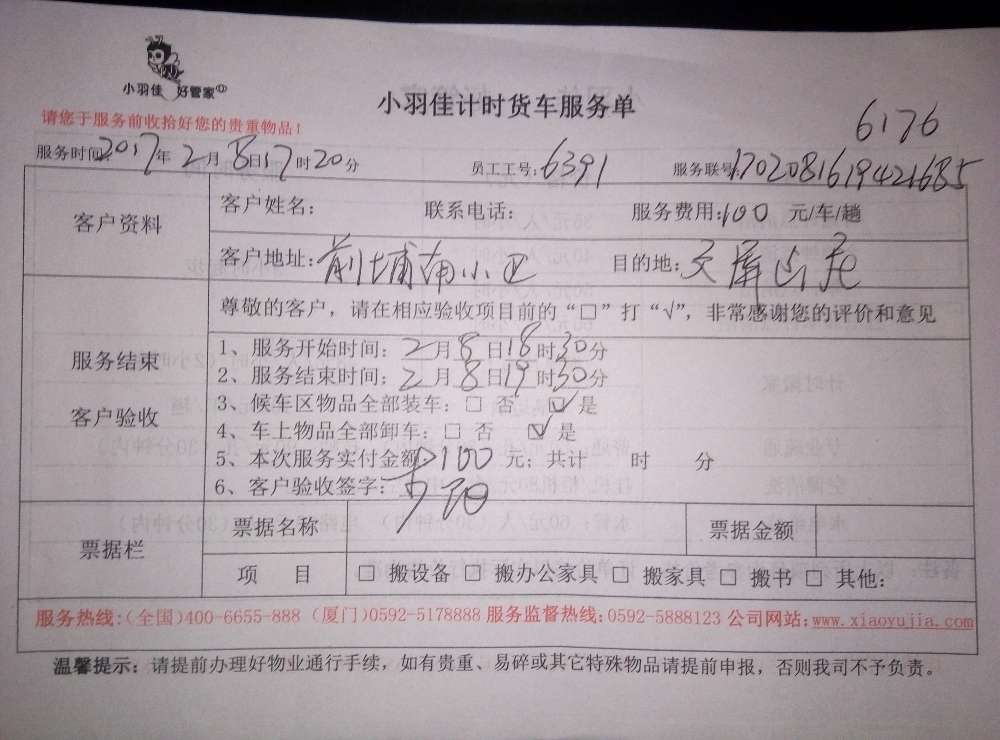 小羽佳 好管家
小羽佳计时货车服务单
6176
请您于服务前收拾好您的贵重物品!
服务时间:2017年2月8日17时20分 员工工号:6391 服务联号:1702081619421685
客户资料
客户姓名: 联系电话: 服务费用:100 元/车/趟
客户地址:前埔南小区 目的地:天屏山庄
服务结束
客户验收
尊敬的客户，请在相应验收项目前的“□”打“√”，非常感谢您的评价和意见
1、服务开始时间:2月8日18时30分
2、服务结束时间:2月8日19时30分
3、候车区物品全部装车:□ 否 ☑ 是
4、车上物品全部卸车:□ 否 ☑ 是
5、本次服务实付金额:100 元; 共计 时 分
6、客户验收签字:
票据栏
票据名称 票据金额
项 目 □ 搬设备 □ 搬办公家具 □ 搬家具 □ 搬书 □ 其他:
服务热线:(全国)400-6655-888 (厦门)0592-5178888 服务监督热线:0592-5888123 公司网站:www.xiaoyujia.com
温馨提示: 请提前办理好物业通行手续，如有贵重、易碎或其它特殊物品请提前申报，否则我司不予负责。